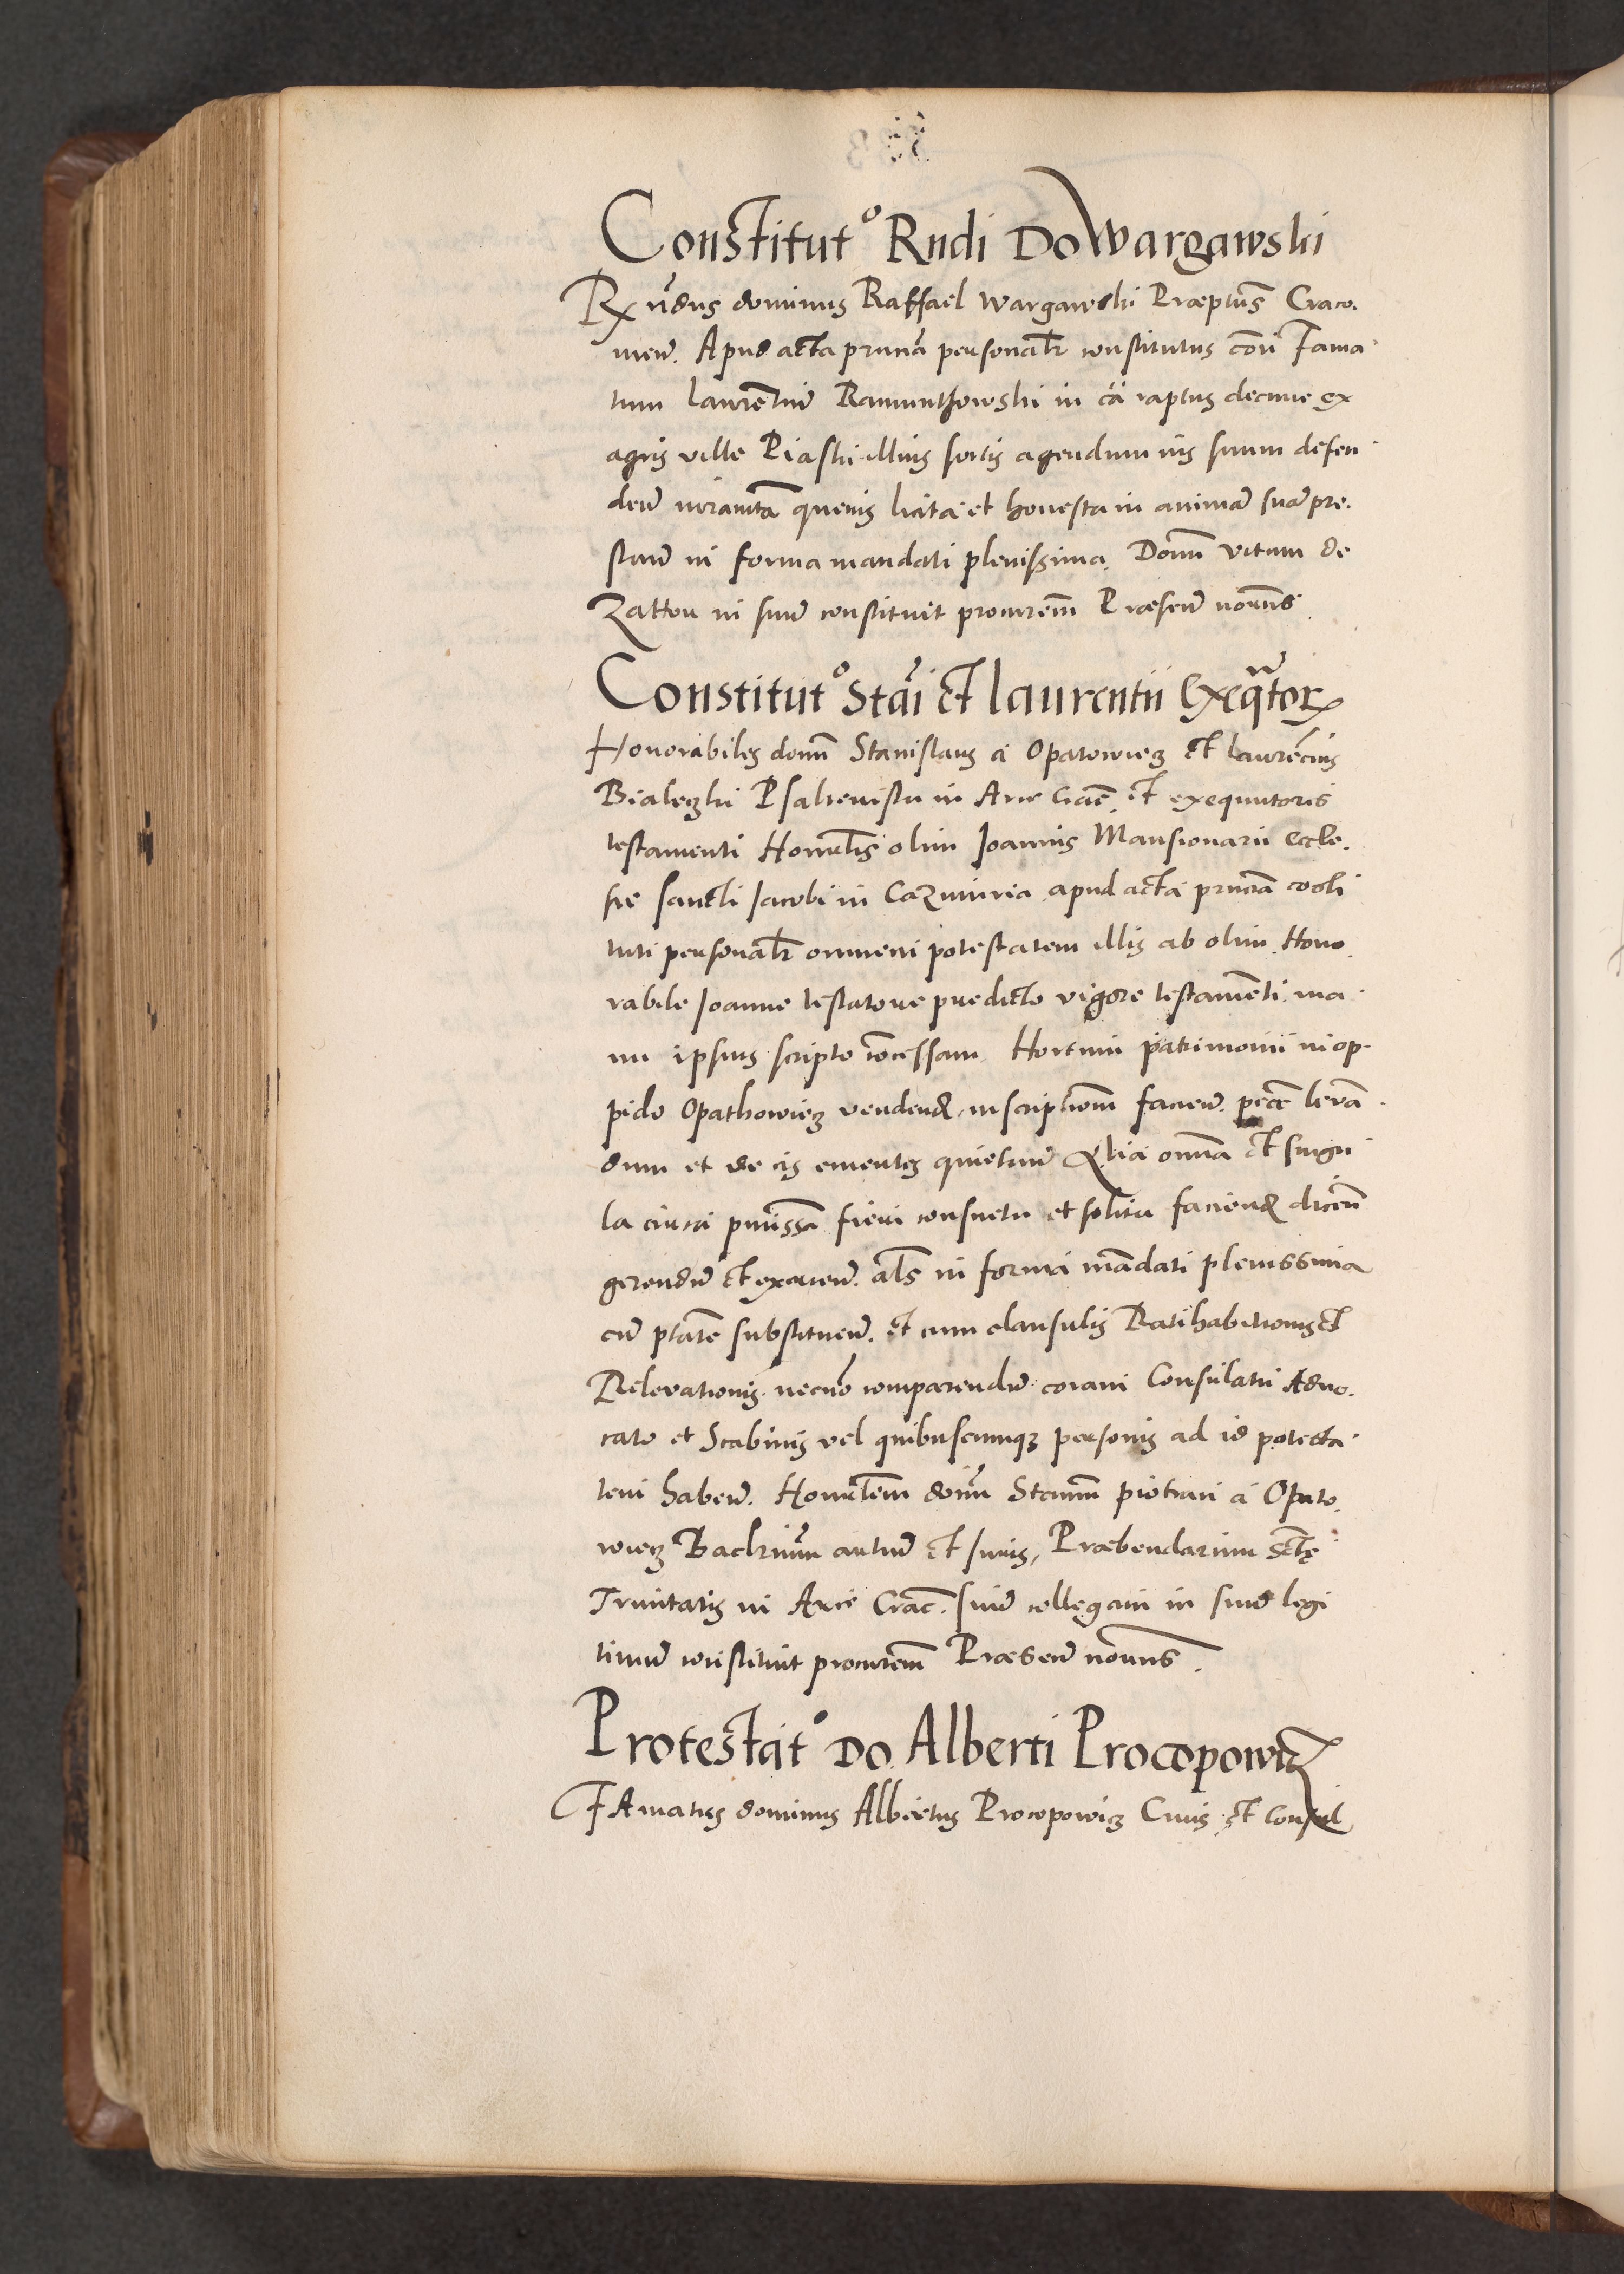 Constitut° Rndi Do Wargawski
Rx ūdus dominus Raffael Wargawski Præptus̄ Craco.
uieñ. Apud acta prncia personalr constitutus coñ Fama
tum Laurentiū Ramunthowski in cā raptus decime ex
agris ville Piaski illius sortis agendum ius suum defen
deñ iuramta quevis licita et honesta in animā suā pre.
stañ in forma mandati plenissima. Domī Vitum de
Zathor in suū constituit procurem̄ Præseñ nonn̄s
Constitut° Stāi et Laurentii Exeqūtor
Honorabiles domī Stanislaus à Opatowiecz et Laurēcius
Bialeczki Psalteriste in Arce Crac̄. et exequutoris
testamenti Honor̄lis olim Joannis Mansionarii Eccle.
sie Sancti Jacobi in Cazimiria apud acta prncia costi
tuti personalr omnem potestatem illis ab olim. Hono.
rabile Joanne testatore predicto vigore testamēti ma
nu ipsius scripto cōcessam Hortum patrimonii in op-
pido Opathowiecz vendend inscriptionem facieñ. pecc̄ levā
dum et de eis ementes quietañ Alia omnia et singu
la circa pmissa fieri consueta et solita faciend dicen̄
gerendū et exerceñ. als in forma mādati plenissima
cū ptāte substitueñ. et cum clausulis Ratihabitionis et
Relevationis. necnō comparendū coram Consulatu Advo.
cato et Scabinis vel quibuscumqz personis ad id potesta
tem habeñ. Honor̄lem domū Stannm̄ piotran à Opato.
wiecz Baclriūm artiū et suūs, Præbendarium Sctę
Trinitatis in Arce Crac̄. suū collegam in suū legi
timū constituit procurem̄ Præseñ nonn̄s.
Protestat° Do. Alberti Procopowicz
FAmatus dominus Albertus Procopowicz Civis et Consul